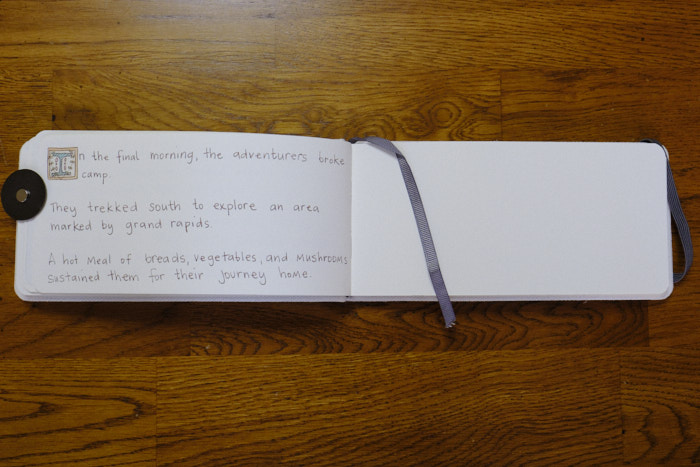 In the final morning, the adventurers broke
camp.
They trekked south to explore an area
marked by grand rapids.
A hot meal of breads, vegetables, and mushrooms
sustained them for their journey home.